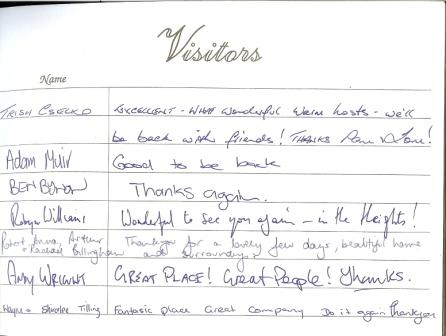 Visitors
Name
TRISH EXCELLENT - WHAT wonderful warm hosts - we'll
be back with friends! THANKS
Adam Muir Good to be back
BEN Thanks again.
Robyn Williams Wonderful to see you again - in the Heights!
Robert, Anna, Arthur Thankyou for a lovely few days, beautiful home
+ Rachael Billingham and surroundings
Amy WRIGHT GREAT PLACE! Great People! Thanks.
Wayne + Shirlee Tilling Fantastic place Great Company Do it again Thankyou